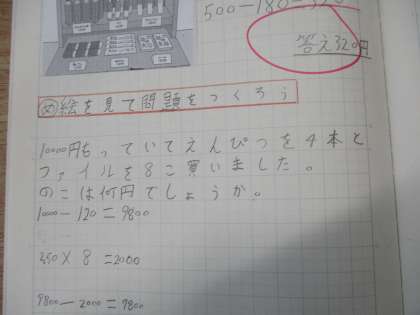 500-180=320
答え320円
め 絵を見て問題をつくろう
10000円もっていてえんぴつを4本と
ファイルを8こ買いました。
のこは何円でしょうか。
1000-120=9800
350×8=2000
9800-2000=9800